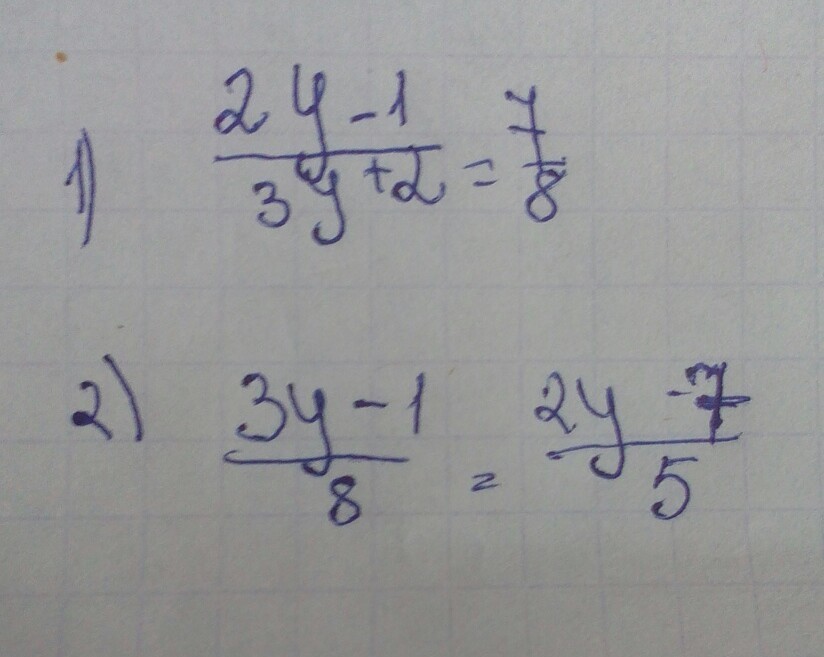 1) (2y - 1)/(3y + 2) = 7/8
2) (3y - 1)/8 = (2y - 7)/5